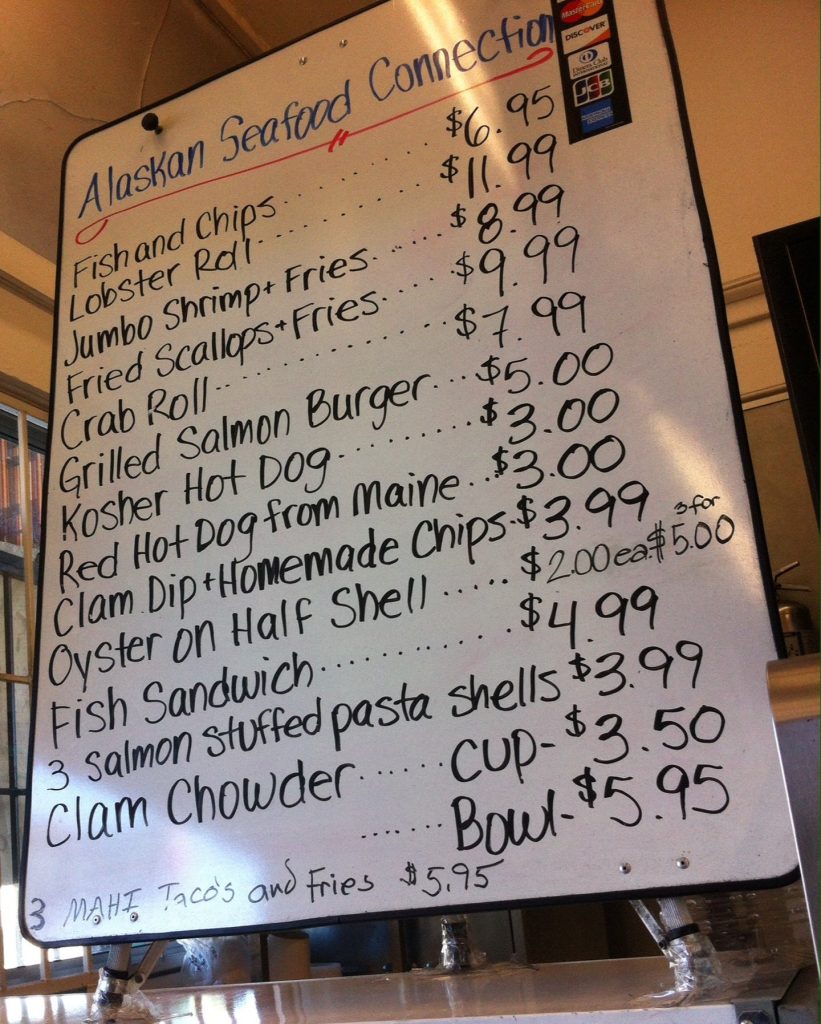 MasterCard
DISCOVER
Diners Club
INTERNATIONAL
JCB
Alaskan Seafood Connection
Fish and Chips............ $6.95
Lobster Roll............ $11.99
Jumbo Shrimp + Fries...... $8.99
Fried Scallops + Fries..... $9.99
Crab Roll.............. $7.99
Grilled Salmon Burger... $5.00
Kosher Hot Dog.......... $3.00
Red Hot Dog from Maine.. $3.00
Clam Dip + Homemade Chips. $3.99
Oyster on Half Shell ..... $2.00 ea. 3 for $5.00
Fish Sandwich............ $4.99
3 Salmon stuffed pasta shells $3.99
Clam Chowder...... Cup- $3.50
....... Bowl- $5.95
3 MAHI Taco's and Fries $5.95